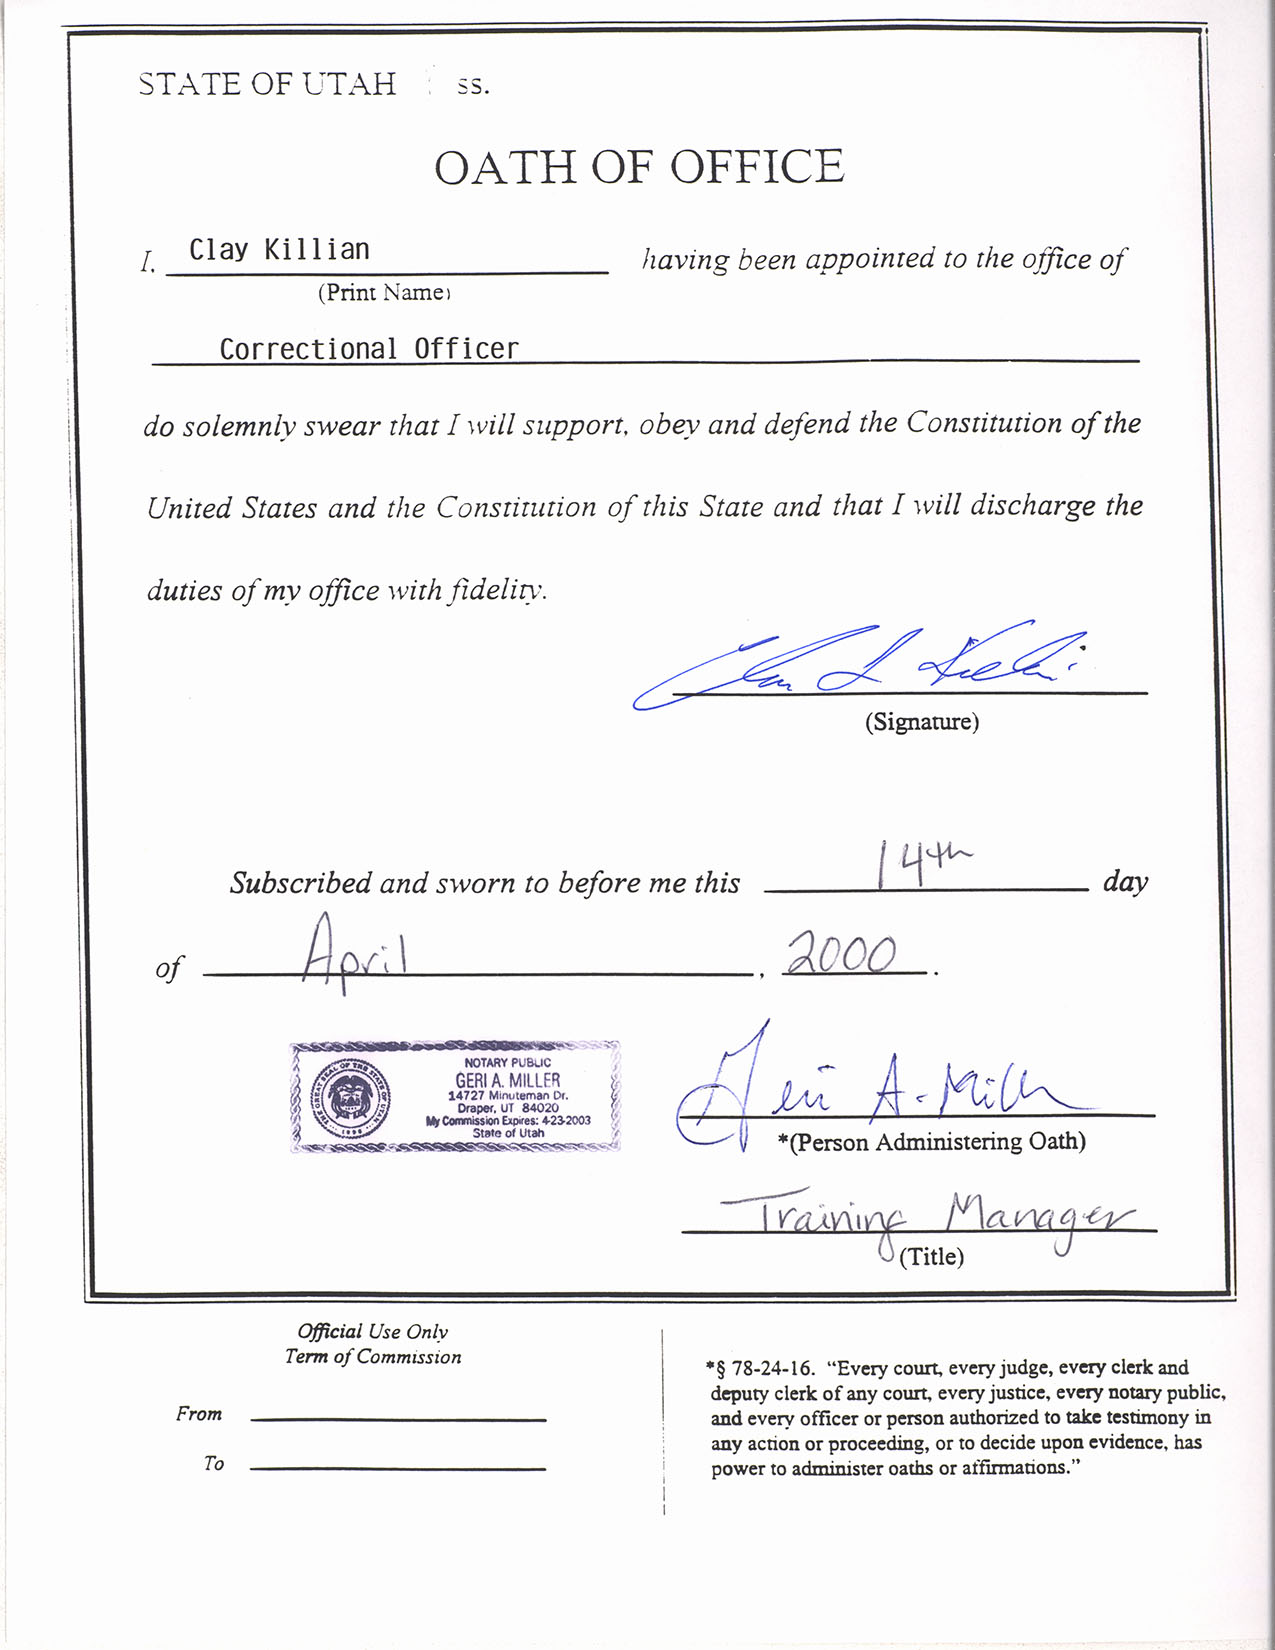 STATE OF UTAH ss.
OATH OF OFFICE
I, Clay Killian having been appointed to the office of
(Print Name)
Correctional Officer
do solemnly swear that I will support, obey and defend the Constitution of the
United States and the Constitution of this State and that I will discharge the
duties of my office with fidelity.
(Signature)
Subscribed and sworn to before me this 14th day
of April, 2000.
NOTARY PUBLIC
GERI A. MILLER
14727 Minuteman Dr.
Draper, UT 84020
My Commission Expires: 4-23-2003
State of Utah
THE GREAT SEAL OF THE STATE OF UTAH
1896
Geri A. Miller
*(Person Administering Oath)
Training Manager
(Title)
Official Use Only
Term of Commission
From
To
*§ 78-24-16. “Every court, every judge, every clerk and
deputy clerk of any court, every justice, every notary public,
and every officer or person authorized to take testimony in
any action or proceeding, or to decide upon evidence, has
power to administer oaths or affirmations.”